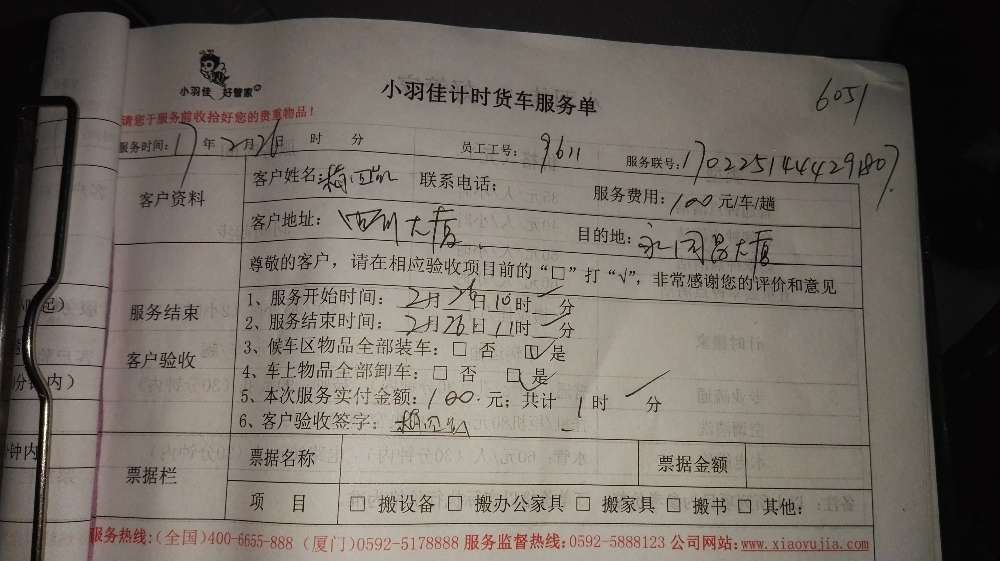 小羽佳 好管家
小羽佳计时货车服务单
6051
请您于服务前收拾好您的贵重物品！
服务时间：17年2月26日 时 分 员工工号：9611 服务联号：1702251444291807
客户资料
客户姓名： 联系电话： 服务费用：100元/车/趟
客户地址：四川大厦 目的地：永同昌大厦
服务结束
客户验收
尊敬的客户，请在相应验收项目前的“□”打“√”，非常感谢您的评价和意见
1、服务开始时间：2月26日10时 分
2、服务结束时间：2月26日11时 分
3、候车区物品全部装车：□ 否 ☑ 是
4、车上物品全部卸车：□ 否 ☑ 是
5、本次服务实付金额：100.元；共计 1时 分
6、客户验收签字：
票据栏
票据名称 票据金额
项 目 □ 搬设备 □ 搬办公家具 □ 搬家具 □ 搬书 □ 其他：
服务热线：(全国)400-6655-888 (厦门)0592-5178888 服务监督热线：0592-5888123 公司网站：www.xiaoyujia.com